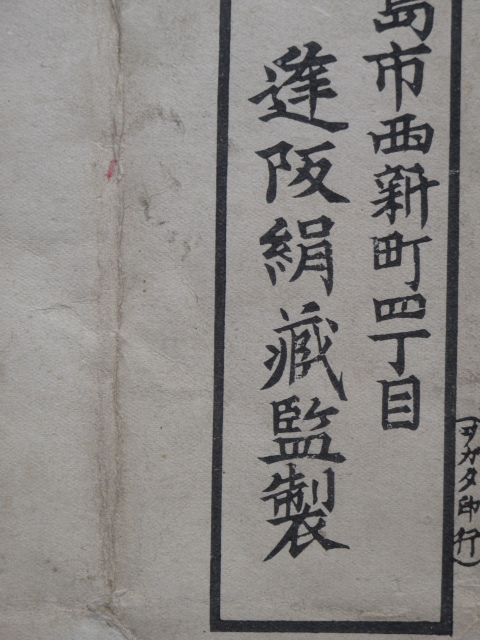 島市西新町四丁目
逢阪絹藏監製
(ヲガタ印行)